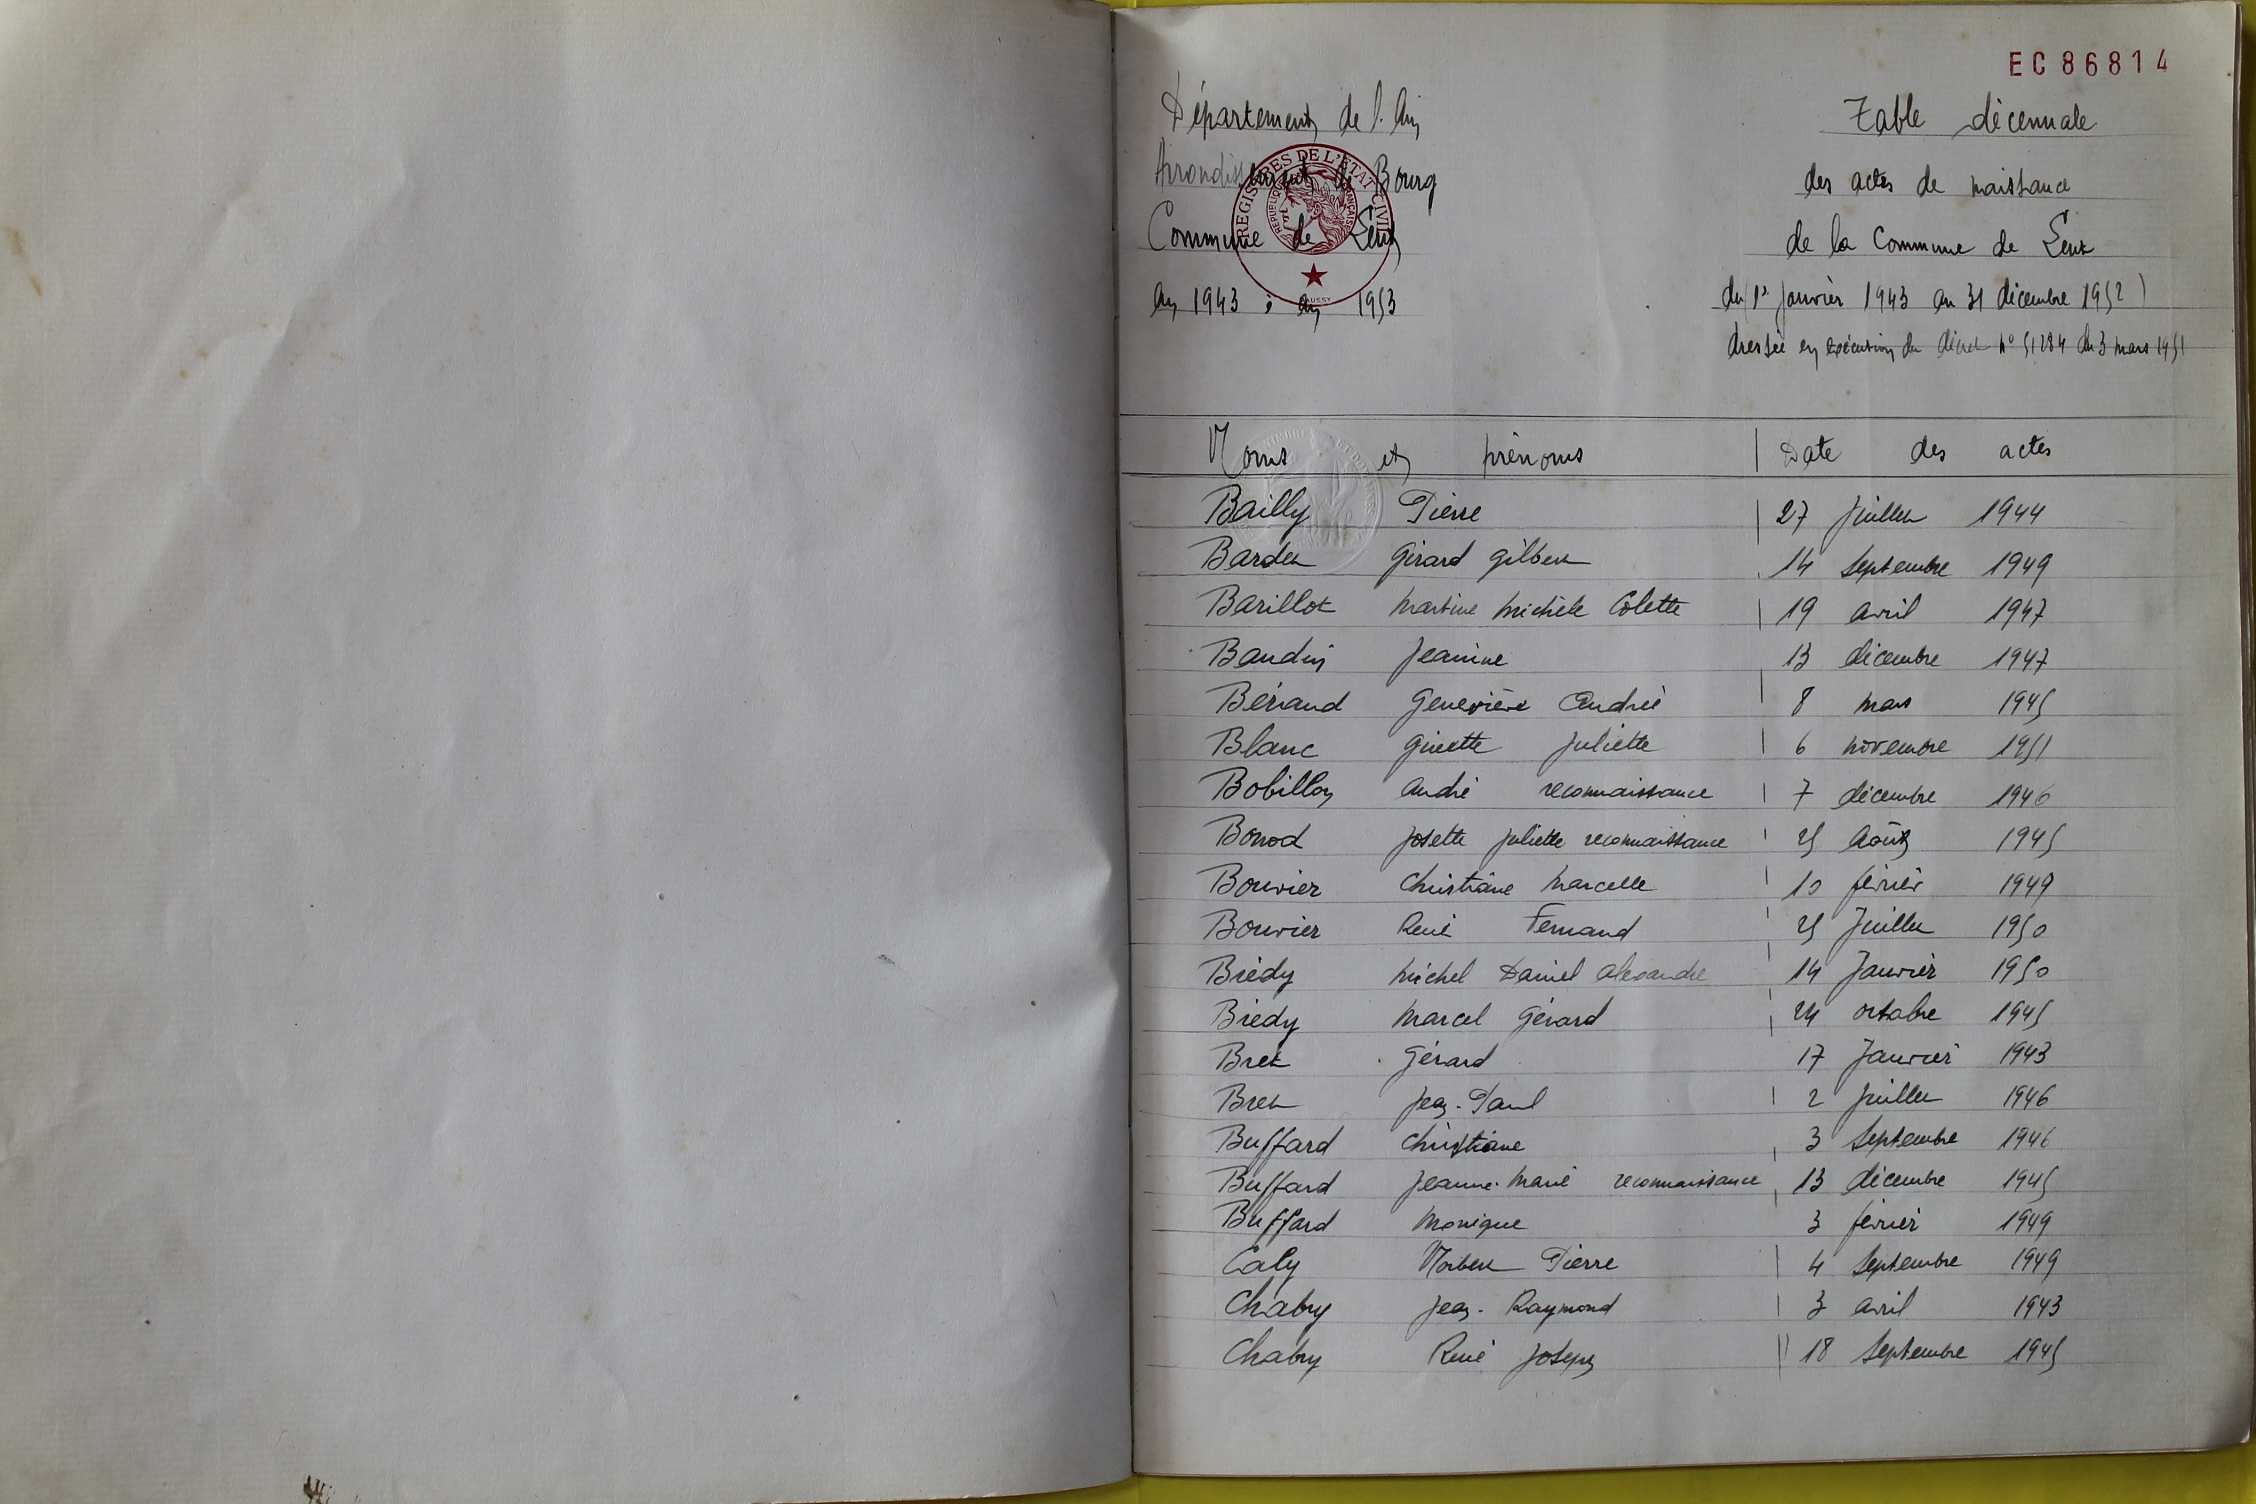 EC 86814
Département de l'Ain
Table décennale
Arrondissement de Bourg
des actes de naissance
Commune de Lent
de la Commune de Lent
REGISTRES DE L'ÉTAT CIVIL
RÉPUBLIQUE FRANÇAISE
An 1943 à an 1953
du (1er Janvier 1943 au 31 décembre 1952)
dressée en exécution du décret n° 51 284 du 3 mars 1951
Noms et prénoms Date des actes
Bailly Pierre 27 Juillet 1944
Bardet Gérard Gilbert 14 Septembre 1949
Barillot Martine Michèle Colette 19 Avril 1947
Baudin Jeanine 13 décembre 1947
Béraud Geneviève Andrée 8 mars 1945
Blanc Ginette Juliette 6 novembre 1951
Bobillon André reconnaissance 7 décembre 1946
Bonod Josette Juliette reconnaissance 25 Août 1945
Bouvier Christiane Marcelle 10 février 1949
Bouvier René Fernand 25 Juillet 1950
Brédy Michel Daniel Alexandre 14 Janvier 1950
Brédy Marcel Gérard 24 octobre 1945
Bret Gérard 17 Janvier 1943
Bret Jean-Paul 2 Juillet 1946
Buffard Christiane 3 Septembre 1946
Buffard Jeanne-Marie reconnaissance 13 décembre 1945
Buffard Monique 3 février 1949
Caly Norbert Pierre 4 Septembre 1949
Chabry Jean-Raymond 3 Avril 1943
Chabry René Joseph 18 Septembre 1945